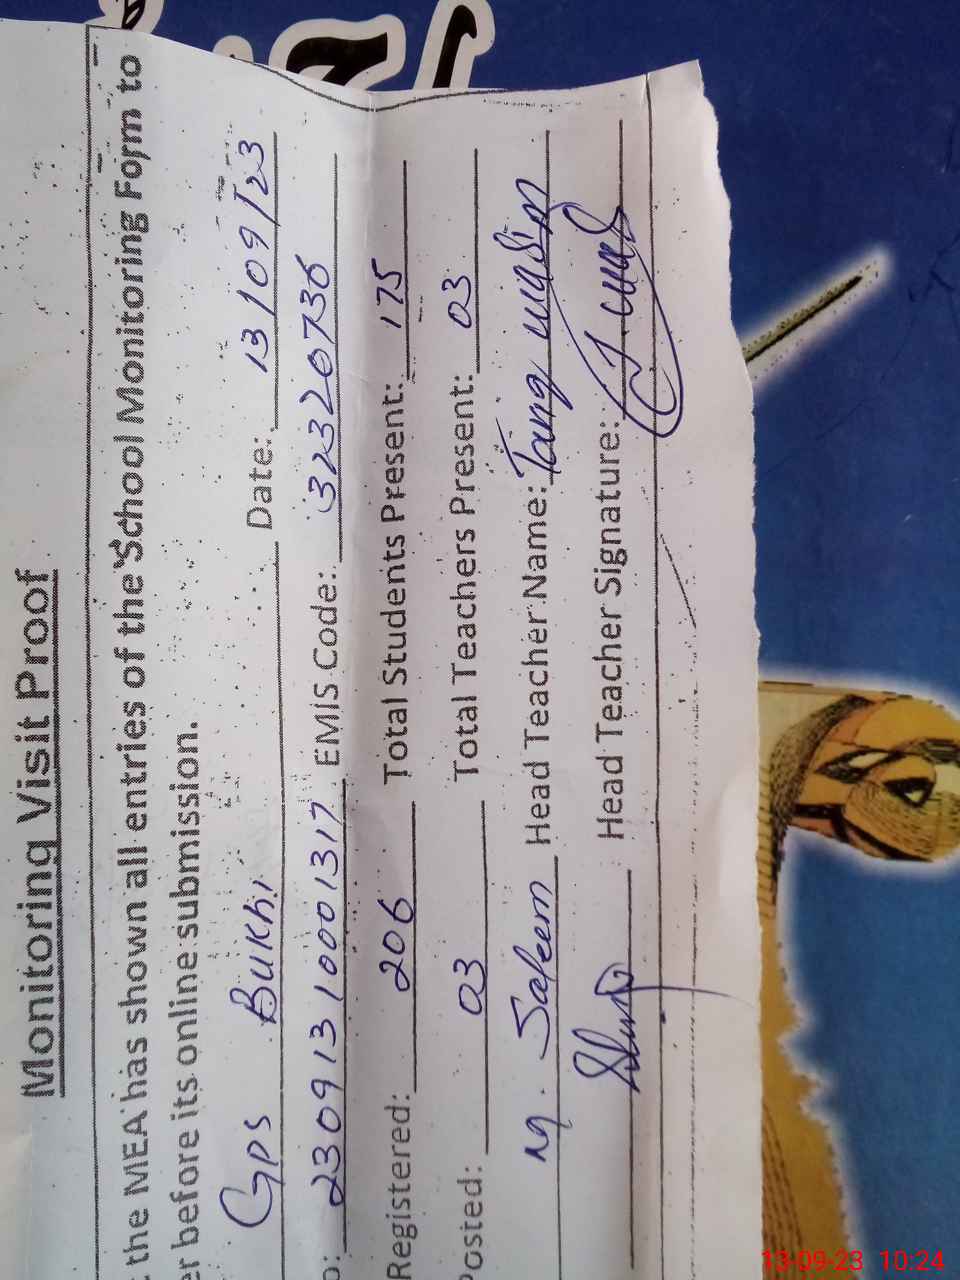 Monitoring Visit Proof
t the MEA has shown all entries of the School Monitoring Form to
er before its online submission.
GPS Bukhi Date: 13/09/23
o: 2309131001317 EMIS Code: 32320736
Registered: 206 Total Students Present: 175
Posted: 03 Total Teachers Present: 03
M. Saleem Head Teacher Name: Tariq
Head Teacher Signature:
13-09-23 10:24